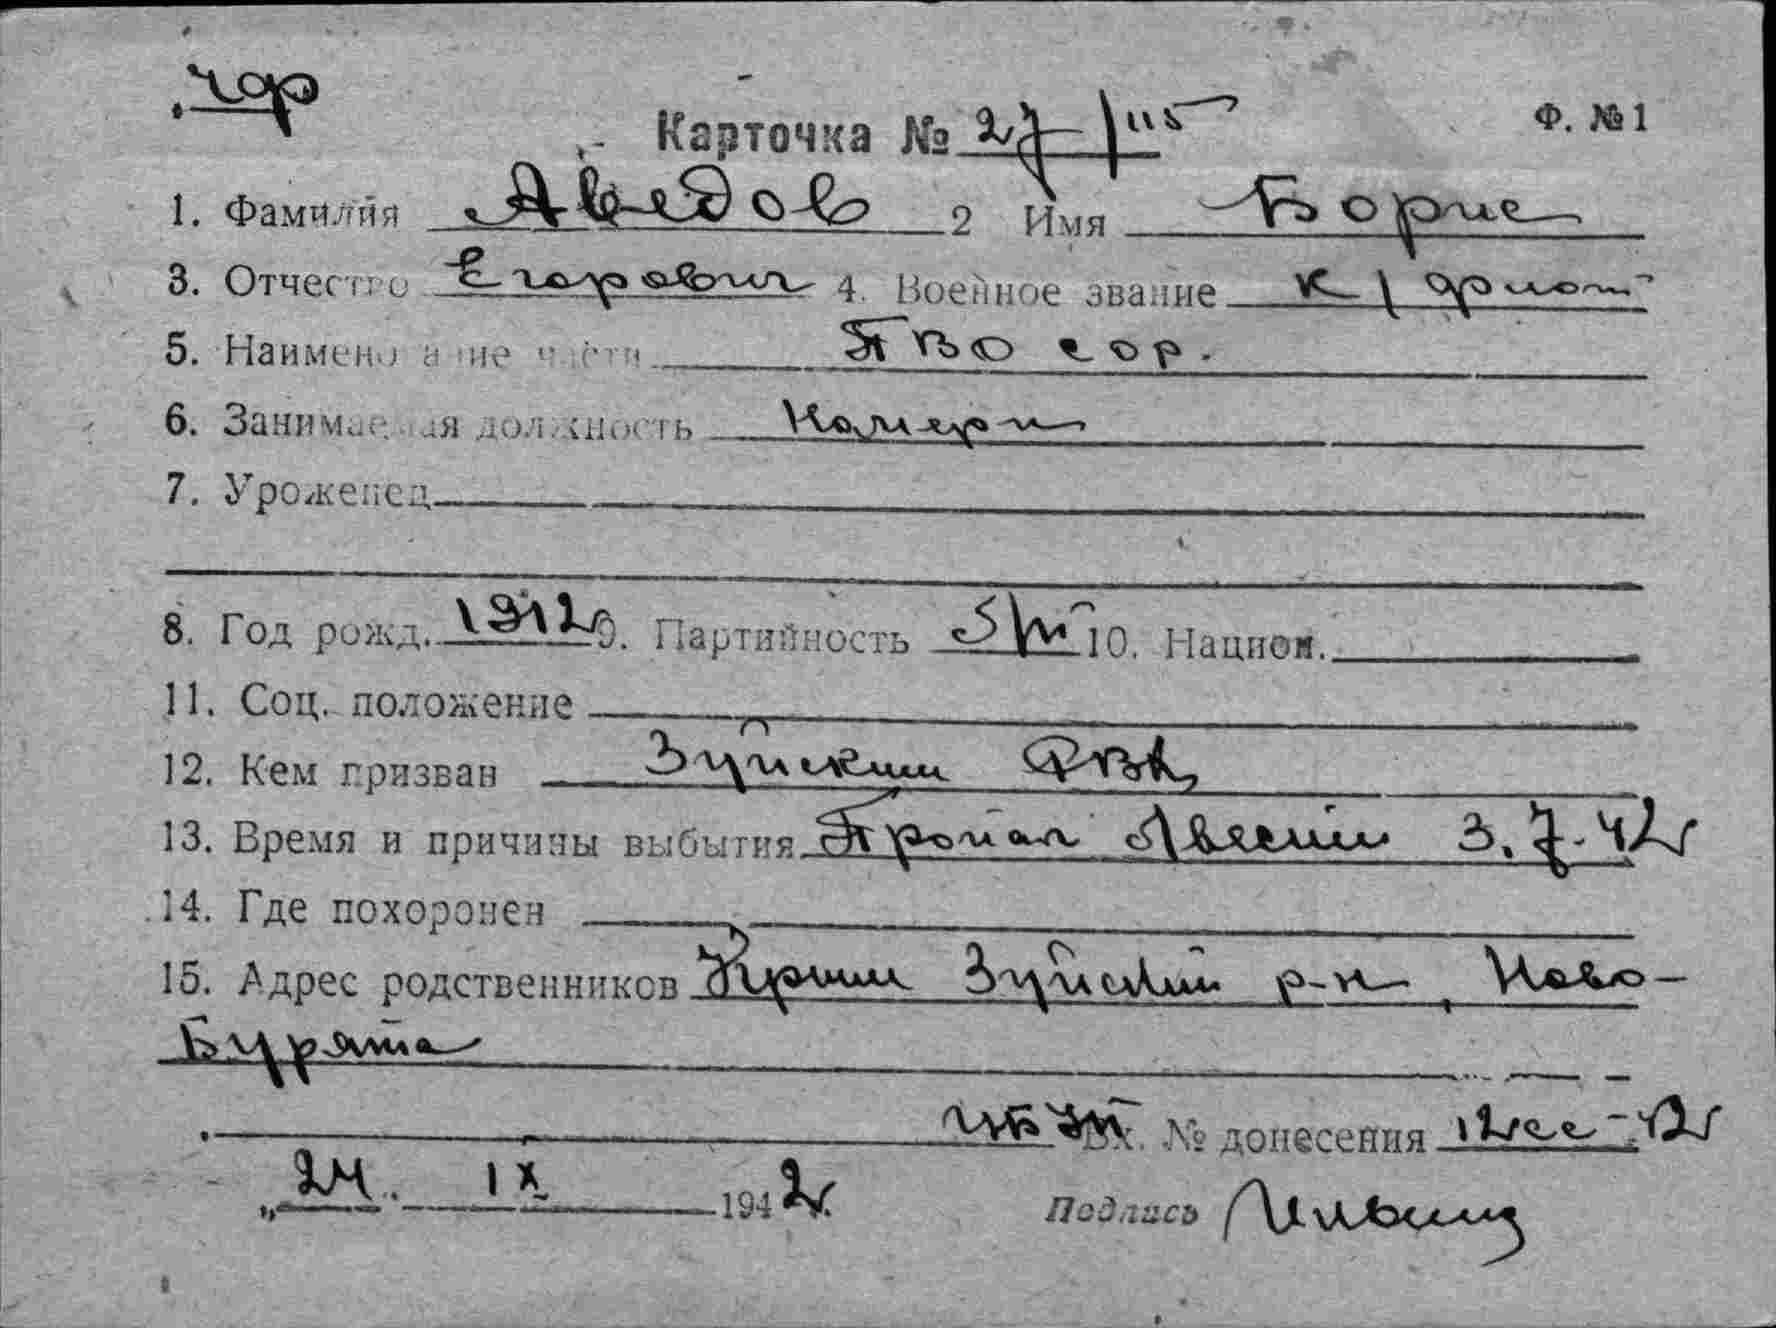 чф
Карточка № 27/115 Ф. № 1
1. Фамилия Аведов 2 Имя Борис
3. Отчество Егорович 4. Военное звание к/флот
5. Наименование части ПВО сор.
6. Занимаемая должность Комерп
7. Уроженец
8. Год рожд. 1912 9. Партийность б/п 10. Национ.
11. Соц. положение
12. Кем призван Зуйским РВК
13. Время и причины выбытия Пропал без вести 3.7.42
14. Где похоронен
15. Адрес родственников Крым Зуйский р-н, Ново-
Бурята
Вх. № донесения 12сс-42
„24. IX 1942г.
Подпись